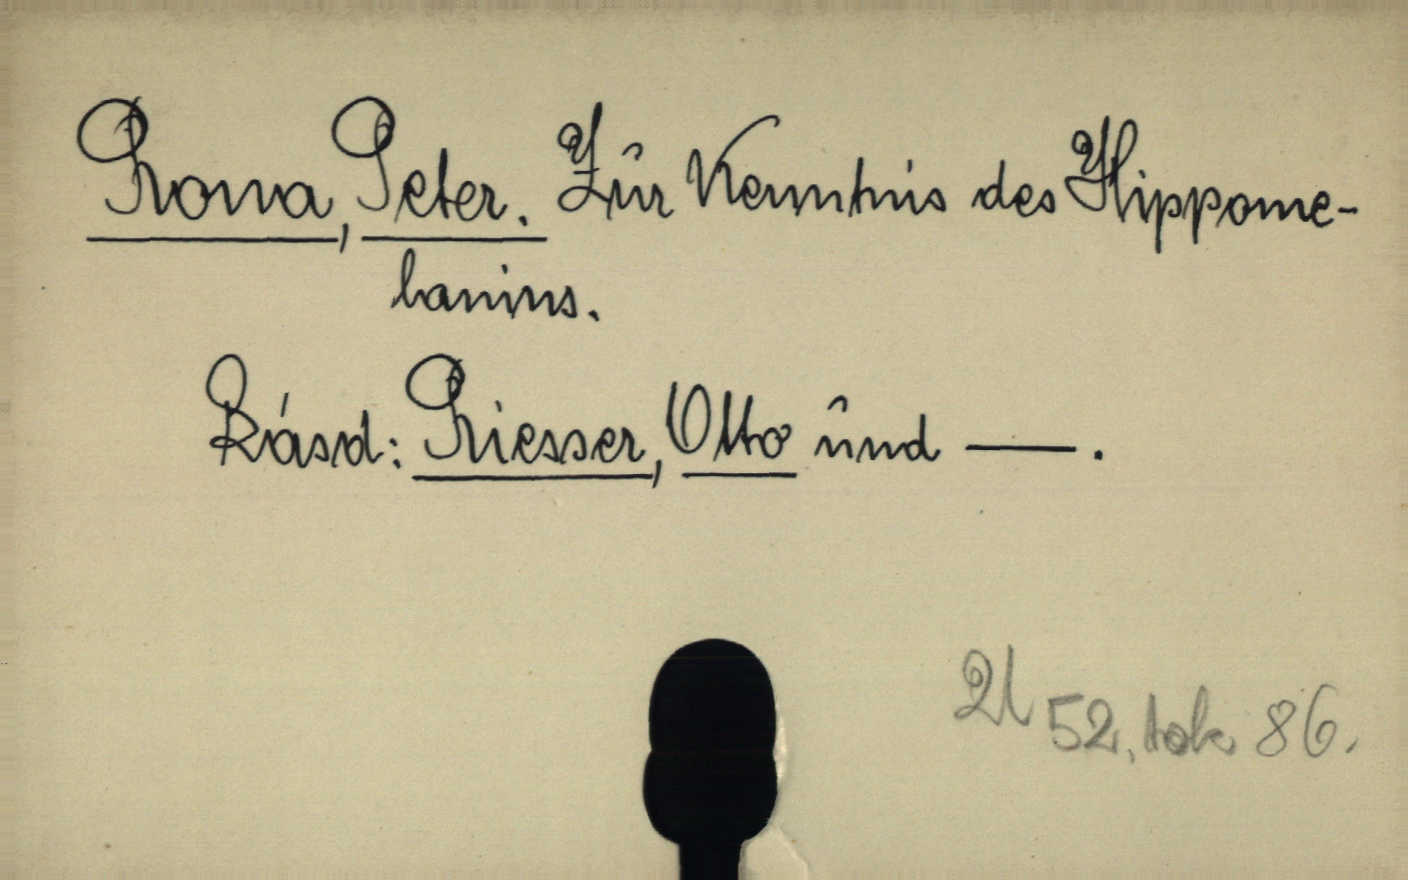 Rona, Peter. Zur Kenntnis des Hippome-
lanins.
Lásd: Riesser, Otto und —.
52, tok 86.